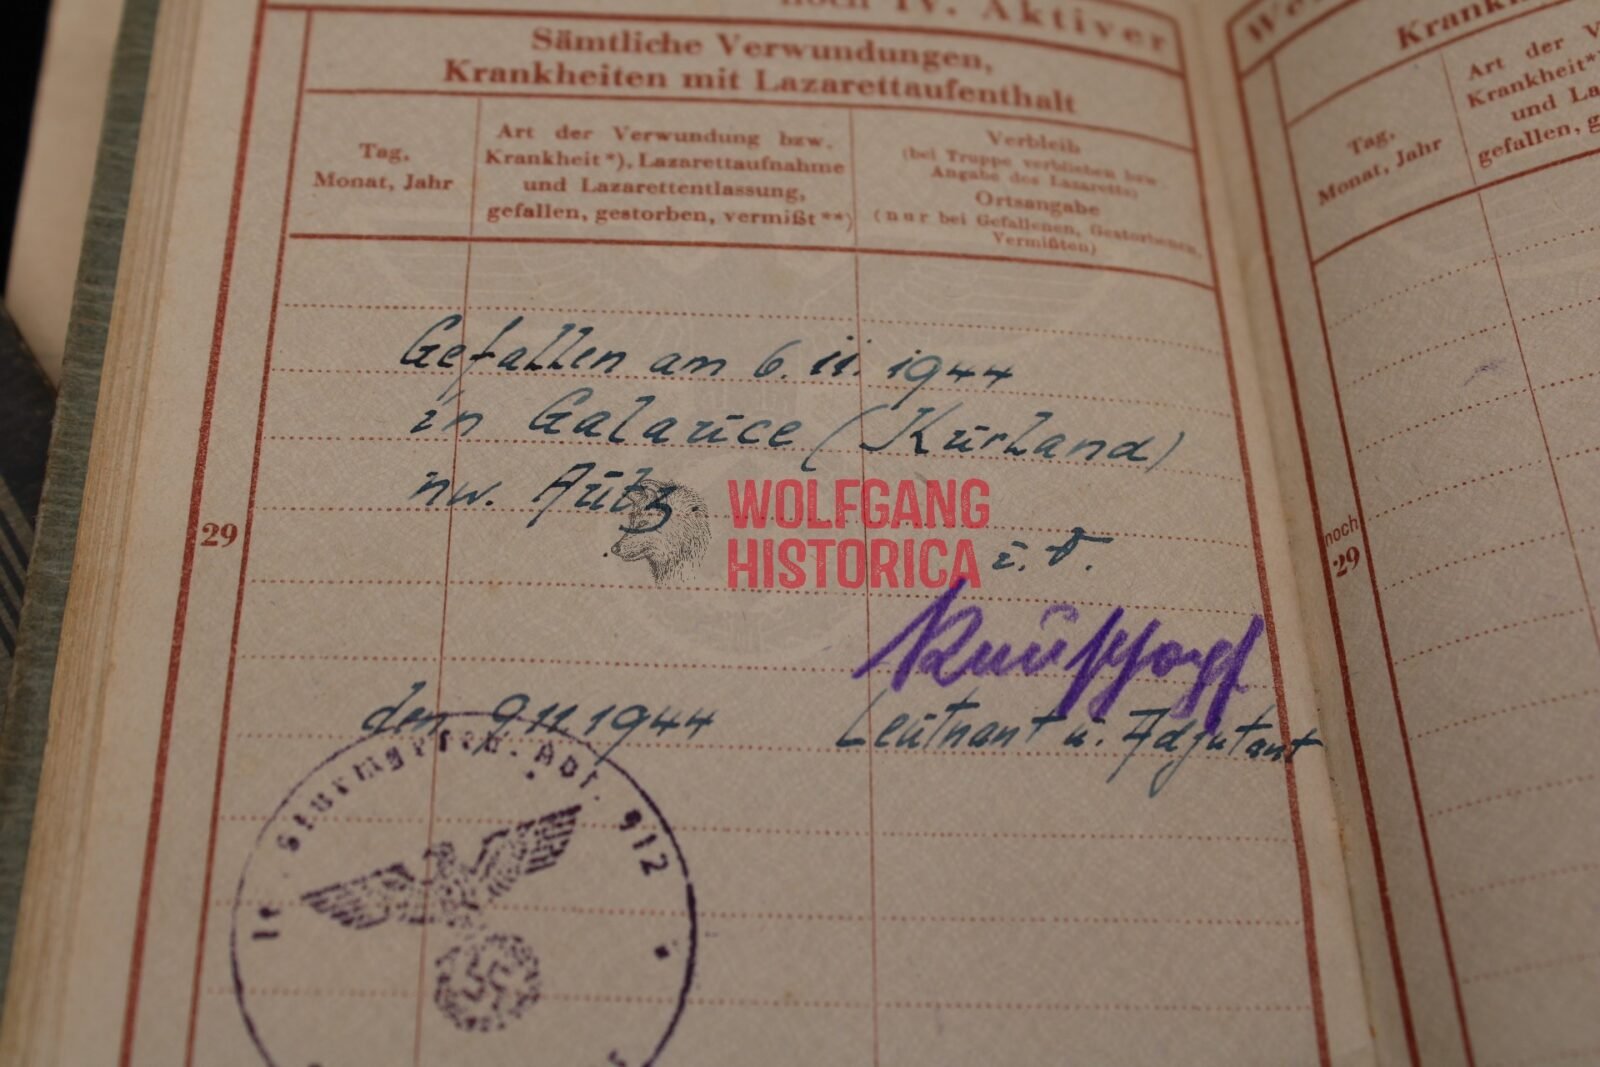 noch IV. Aktiver
Sämtliche Verwundungen,
Krankheiten mit Lazarettaufenthalt
Tag,
Monat, Jahr
Art der Verwundung bzw.
Krankheit*), Lazarettaufnahme
und Lazarettentlassung,
gefallen, gestorben, vermißt**)
Verbleib
(bei Truppe verblieben bzw.
Angabe des Lazaretts)
Ortsangabe
(nur bei Gefallenen, Gestorbenen,
Vermißten)
29
Gefallen am 6.11.1944
in Galauce (Kurland)
nw. Autz.
WOLFGANG
HISTORICA
den 9.11.1944
Leutnant u. Adjutant
Sturmgesch. Abt. 912
Tag,
Monat, Jahr
Art der
Krankheit*
und La
gefallen, g
noch
29